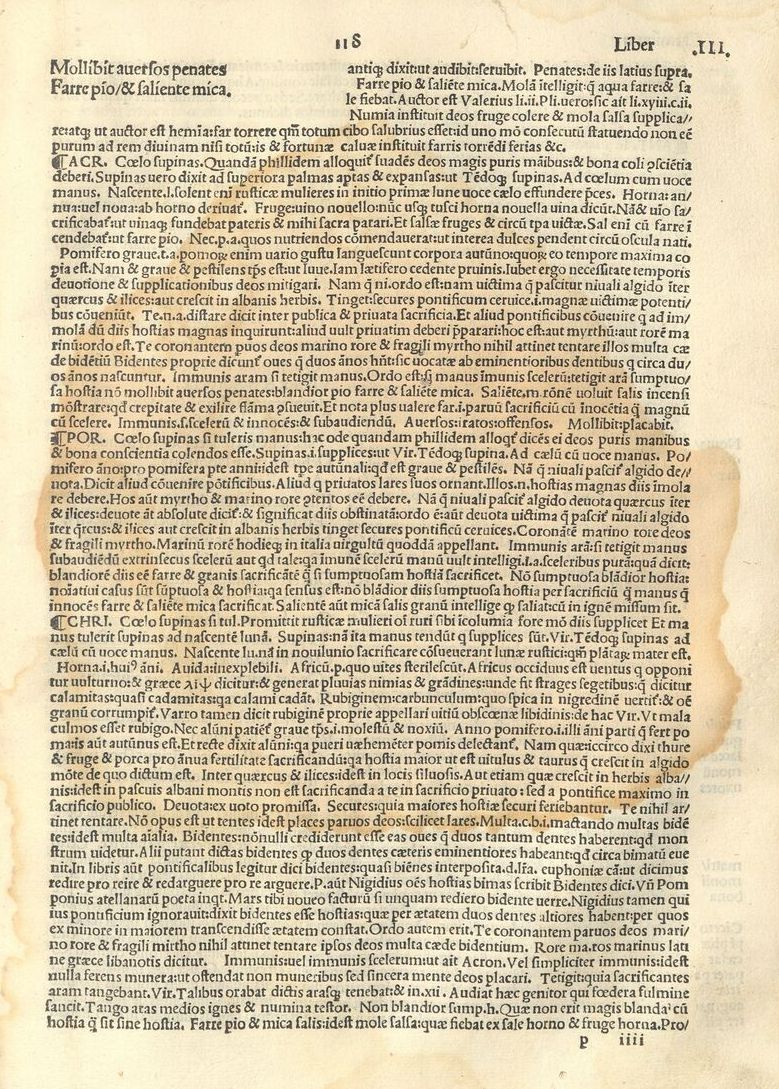 118
Liber .III.
Mollibit auersos penates
Farre pio/& saliente mica.
antiq; dixit:ut audibit:seruibit. Penates:de iis latius supra.
Farre pio & saliēte mica. Molā ītelligit:q̄ aqua farre:& sa
le fiebat. Auctor est Valerius li.ii. Pli.uero:sic ait li.xviii.c.ii.
Numia instituit deos fruge colere & mola salsa supplica//
re:atq; ut auctor est hemīa:far torrere qm̄ totum cibo salubrius esset:id uno mō consecutū statuendo non eē
purum ad rem diuinam nisi totū:is & fortunæ caluæ instituit farris torrēdi ferias &c.
¶ACR. Cœlo supinas. Quandā phillidem alloquit̄ suadēs deos magis puris māibus:& bona coli ꝯsciētia
deberi. Supinas uero dixit ad superiora palmas aptas & expansas:ut Tēdoq; supinas. Ad cœlum cum uoce
manus. Nascente.l.solent eni rusticæ mulieres in initio primæ lune uoce cælo effundere p̄ces. Horna:an/
nua:uel noua:ab horno deriuat̄. Fruge:uino nouello:nūc usq; tusci horna nouella uina dicūt. Nā & uīo sa/
crificabat̄:ut uinaq; fundebat pateris & mihi sacra parari. Et salsæ fruges & circū tpa uictæ. Sal eni cū farre ī
cendebat̄:ut farre pio. Nec.p.a.quos nutriendos cōmendauerat:ut interea dulces pendent circū oscula nati.
Pomifero graue.t.a.pomoꝝ enim uario gustu languescunt corpora autūno:quoꝝ eo tempore maxima co
pia est. Nam & graue & pestilens tp̄s est:ut Iuue. Iam lætifero cedente pruinis. Iubet ergo necessitate temporis
deuotione & supplicationibus deos mitigari. Nam q̄ ni.ordo est:nam uictima q̄ pascitur niuali algido īter
quærcus & ilices:aut crescit in albanis herbis. Tinget:secures pontificum ceruice.i.magnæ uictimæ potenti/
bus cōueniūt. Te.n.a.distare dicit inter publica & priuata sacrificia. Et aliud pontificibus cōuenire q ad im/
molā dū diis hostias magnas inquirunt:aliud uult priuatim deberi p̄parari:hoc est:aut myrthū:aut rorē ma
rinū:ordo est. Te coronantem puos deos marino rore & fragili myrtho nihil attinet tentare illos multa cæ
de bidētiū Bidentes proprie dicunt̄ oues q̄ duos ānos hūt:sic uocatæ ab eminentioribus dentibus q circa du/
os ānos nascuntur. Immunis aram si tetigit manus. Ordo est:si manus īmunis scelerū:tetigit arā sumptuo/
sa hostia nō mollibit auersos penates:blandior pio farre & saliēte mica. Saliēte.m.rōnē uoluit salis incensi
mōstrare:qd crepitate & exilire flāma ꝯsueuit. Et nota plus ualere far.i.paruū sacrificiū cū īnocētia q̄ magnū
cū scelere. Immunis.s.scelerū & innocēs:& subaudiendū. Auersos:iratos:offensos. Mollibit:placabit.
¶POR. Cœlo supinas si tuleris manus:hac ode quandam phillidem alloqt̄ dicēs ei deos puris manibus
& bona conscientia colendos esse. Supinas.i.supplices:ut Vir. Tēdoq; supina. Ad cælū cū uoce manus. Po/
mifero āno:pro pomifera pte anni:idest tpe autūnali:qd est graue & pestilēs. Nā q̄ niuali pascit̄ algido de//
nota. Dicit aliud cōuenire pōtificibus. Aliud q priuatos lares suos ornant. Illos.n.hostias magnas diis īmola
re debere. Hos aūt myrtho & marino rore ꝯtentos eē debere. Nā q̄ niuali pascit̄ algido deuota quærcus īter
& ilices:deuote āt absolute dicit̄:& significat diis obstinata:ordo ē:aūt deuota uictima q̄ pascit̄ niuali algido
īter q̄rcus:& ilices aut crescit in albanis herbis tinget secures pontificū ceruices. Coronātē marino rore deos
& fragili myrtho. Marinū rorē hodieq; in italia uirgultū quoddā appellant. Immunis arā:si tetigit manus
subaudiēdū extrinsecus scelerū aut qd tale:qa īmunē scelerū manū uult intelligi.i.a.sceleribus purā:quā dicit:
blandiorē diis eē farre & granis sacrificātē q̄ si sumptuosam hostiā sacrificet. Nō sumptuosa blādior hostia:
noīatiui casus sūt sūptuosa & hostia:qa sensus est:nō blādior diis sumptuosa hostia per sacrificiū q̄ manus q
innocēs farre & saliēte mica sacrificat. Salientē aūt micā salis granū intellige qꝫ saliat:cū in ignē missum sit.
¶CHRI. Cœlo supinas si tul. Promittit rusticæ mulieri of ruri sibi icolumia fore mō diis supplicet Et ma
nus tulerit supinas ad nascentē lunā. Supinas:nā ita manus tendūt q supplices sūt. Vir. Tēdoq; supinas ad
cælū cū uoce manus. Nascente lu.nā in nouilunio sacrificare cōsueuerant lunæ rustici:qm̄ plātaꝝ mater est.
Horna.i.huiꝰ āni. Auida:inexplebili. Africū.p.quo uites sterilescūt. Africus occiduus est uentus q opponi
tur uulturno:& græce λιψ dicitur:& generat pluuias nimias & grādines:unde fit strages segetibus:q̄ dicitur
calamitas:quasi cadamitas:qa calami cadāt. Rubiginem:carbunculum:quo spica in nigredinē uertit̄:& oē
granū corrumpit̄. Varro tamen dicit rubiginē proprie appellari uitiū obscœnæ libidinis:de hac Vir. Vt mala
culmos esset rubigo. Nec alūni patiēt̄ graue tp̄s.i.molestū & noxiū. Anno pomifero.i.illi āni parti q̄ fert po
ma:is aūt autūnus est. Et recte dixit alūni:qa pueri uæhemēter pomis delectant̄. Nam quæ:iccirco dixi thure
& fruge & porca pro ānua fertilitate sacrificandū:qa hostia maior ut est uitulus & taurus q̄ crescit in algido
mōte de quo dictum est. Inter quærcus & ilices:idest in locis siluosis. Aut etiam quæ crescit in herbis alba//
nis:idest in pascuis albani montis non est sacrificanda a te in sacrificio priuato:sed a pontifice maximo in
sacrificio publico. Deuota:ex uoto promissa. Secures:quia maiores hostiæ securi feriebantur. Te nihil at/
tinet tentare. Nō opus est ut tentes idest places paruos deos:scilicet lares. Multa.c.b.i.mactando multas bidē
tes:idest multa aīalia. Bidentes:nōnulli crediderunt esse eas oues q̄ duos tantum dentes haberent:qd mon
strum uidetur. Alii putant dictas bidentes qꝫ duos dentes cæteris eminentiores habeant:qd circa bimatū eue
nit. In libris aūt pontificalibus legitur dici bidentes:quasi biēnes interposita.d.l̄ra. euphoniæ cā:ut dicimus
redire pro reire & redarguere pro re arguere. P.aūt Nigidius oēs hostias bimas scribit Bidentes dici. Vn̄ Pom
ponius atellanarū poeta inqt. Mars tibi noueo facturū si unquam rediero bidente uerre. Nigidius tamen qui
ius pontificium ignorauit:dixit bidentes esse hostias:quæ per ætatem duos dentes altiores habent:per quos
ex minore in maiorem transcendisse ætatem constat. Ordo autem erit. Te coronantem paruos deos mari/
no rore & fragili mirtho nihil attinet tentare ipsos deos multa cæde bidentium. Rore ma.ros marinus lati
ne græce libanotis dicitur. Immunis:uel immunis scelerum:ut ait Acron. Vel simpliciter immunis:idest
nulla ferens munera:ut ostendat non muneribus sed sincera mente deos placari. Tetigit:quia sacrificantes
aram tangebant. Vir. Talibus orabat dictis arasq; tenebat:& in.xii. Audiat hæc genitor qui fœdera fulmine
sancit. Tango aras medios ignes & numina testor. Non blandior sump.h. Quæ non erit magis blanda cū
hostia q̄ sit sine hostia. Farre pio & mica salis:idest mole salsa:quæ fiebat ex sale horno & fruge horna. Pro/
p iiii